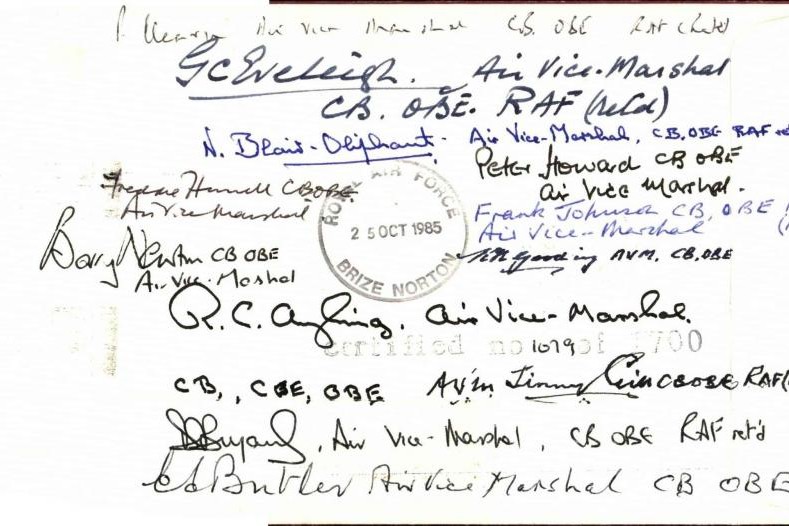 Air Vice Marshal CB. OBE RAF (Retd)
G C Eveleigh. Air Vice-Marshal
CB. OBE. RAF (retd)
N. Blair-Oliphant. Air Vice-Marshal, CB.OBE RAF
Peter Howard CB OBE
Air Vice Marshal.
Freddie Hurrell CB OBE.
Air Vice Marshal
Frank Johnson CB, OBE
Air Vice-Marshal
ROYAL AIR FORCE
25 OCT 1985
BRIZE NORTON
Barry Newton CB OBE
Air Vice-Marshal
AVM. CB, OBE
R. C. Air Vice-Marshal.
certified no 1079 of 1700
CB, CBE, OBE
AVM Jimmy CB OBE RAF
Air Vice-Marshal, CB OBE RAF ret'd
Butler Air Vice Marshal CB OBE